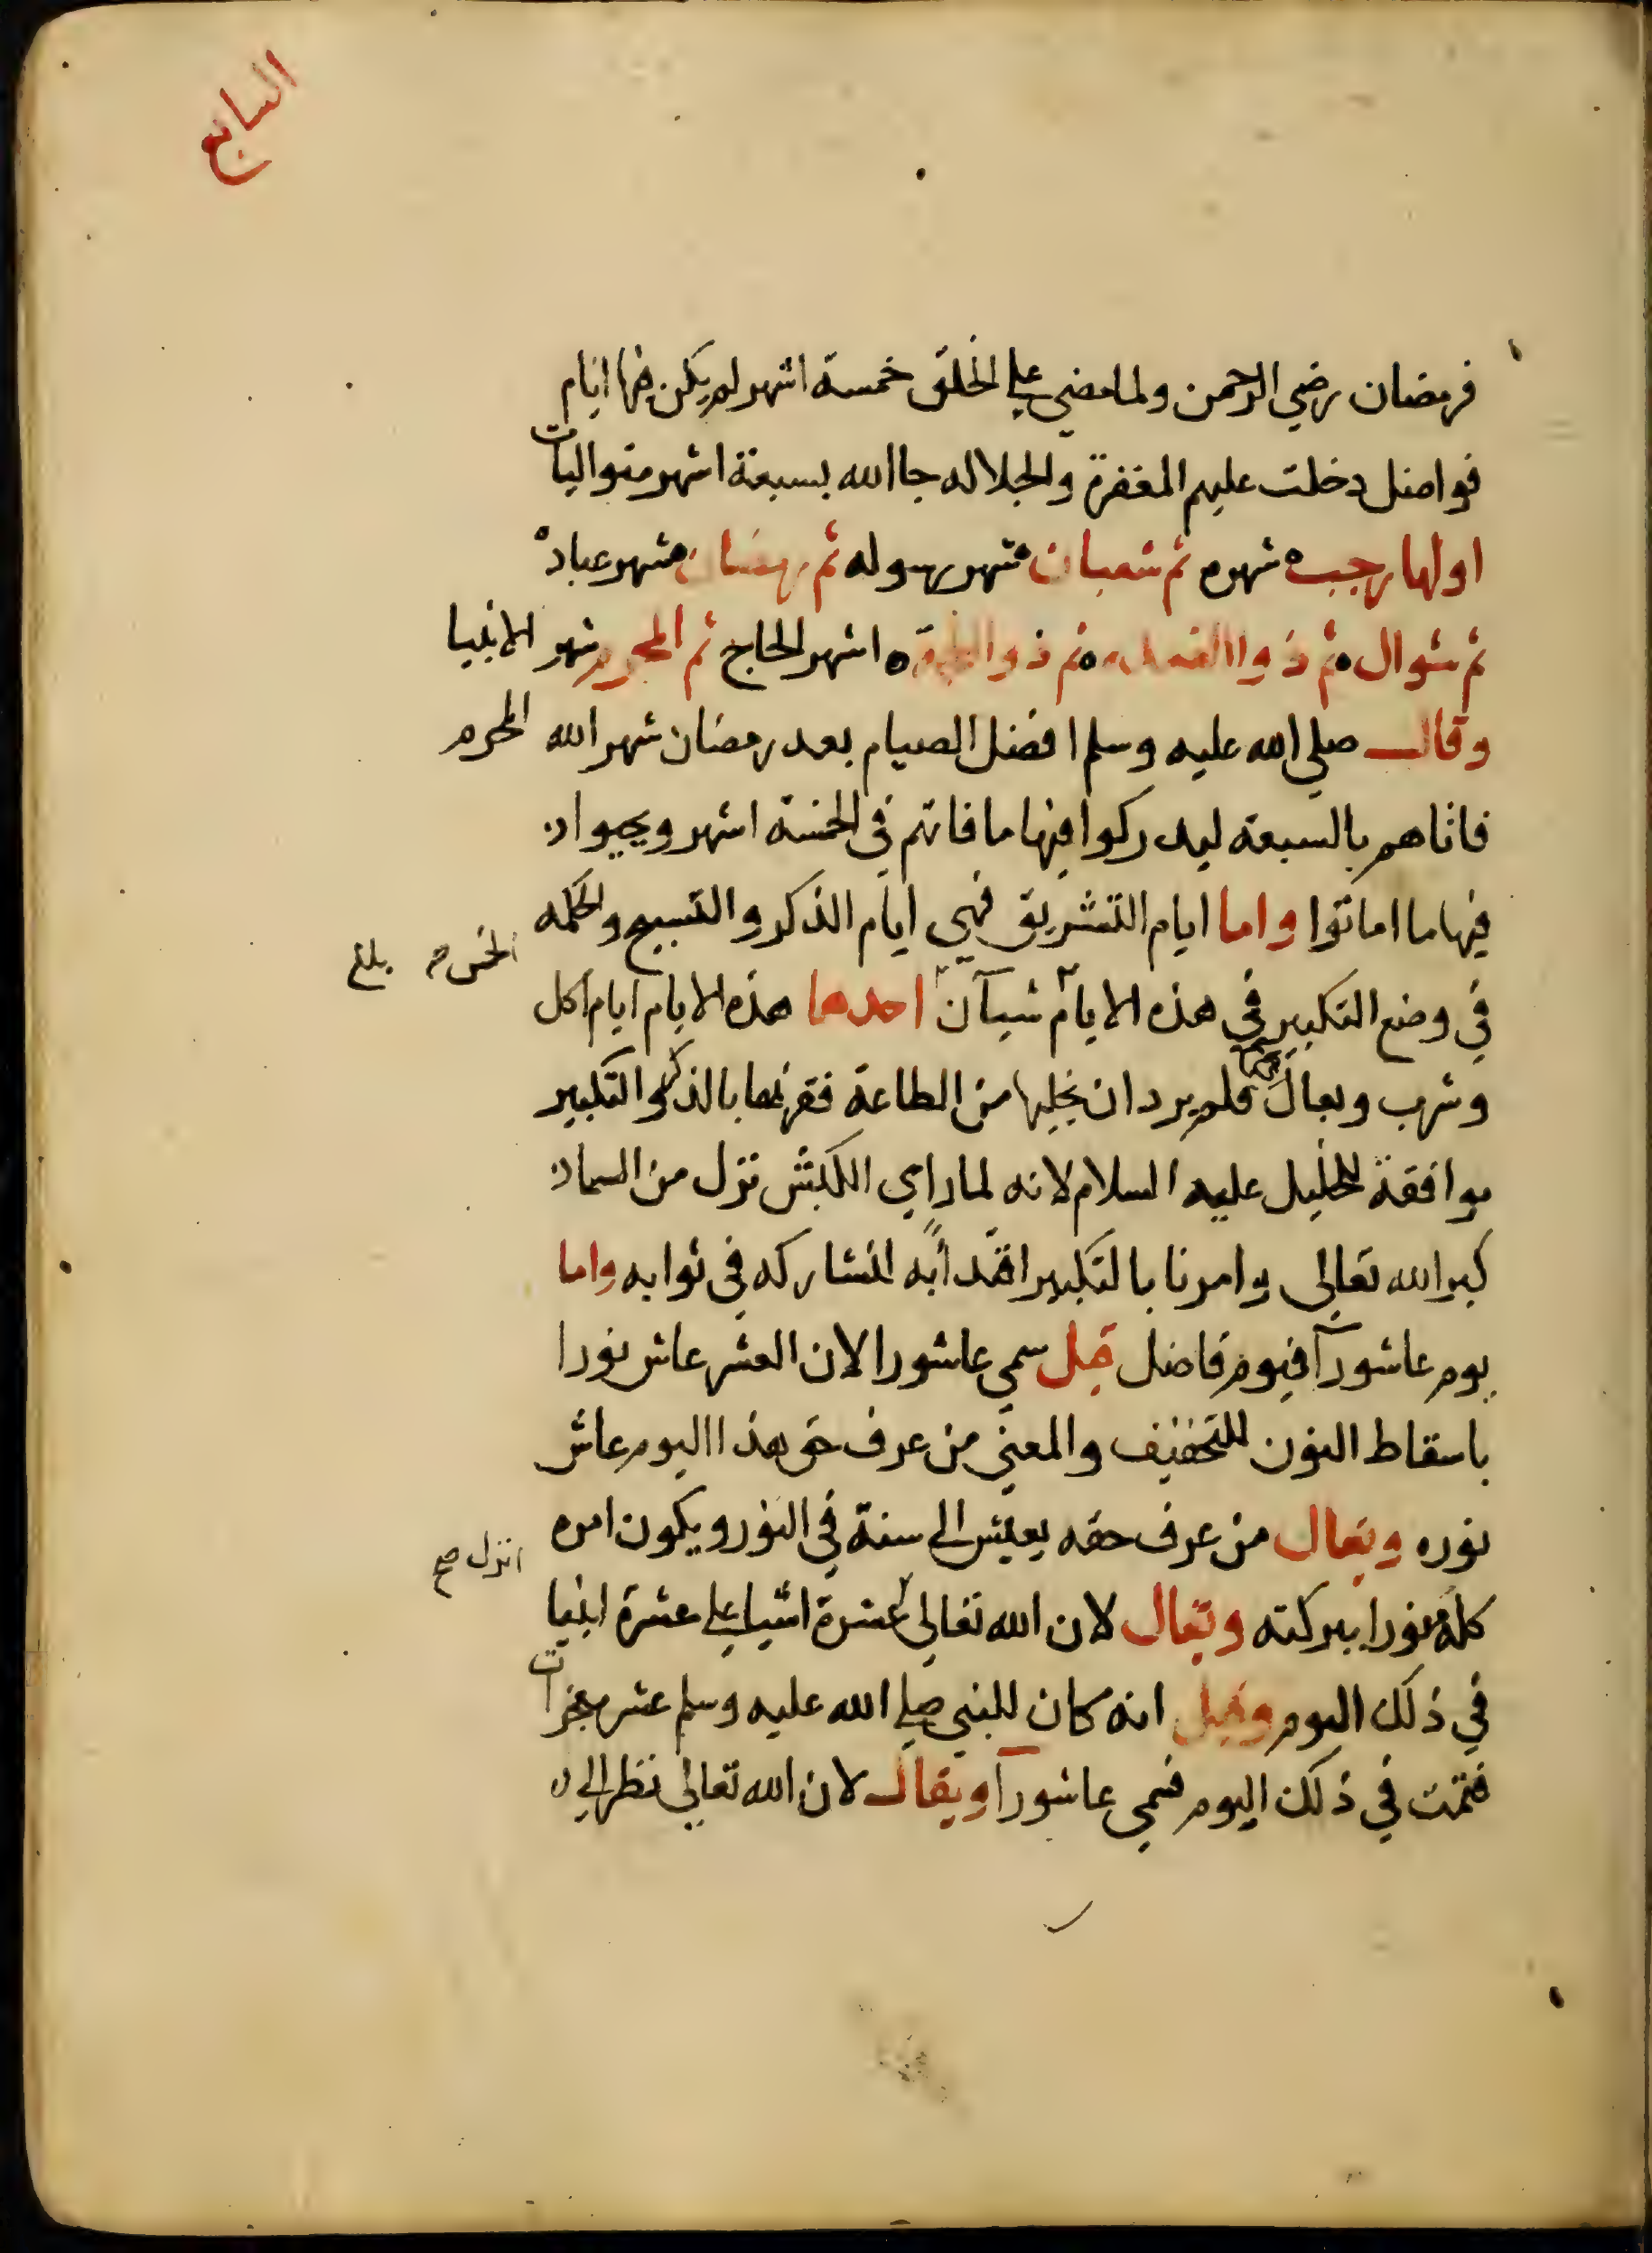 السابع
فرمضان رضي الرحمن ولما مضي علي الخلق خمسة اشهر لم يكن فيها ايام
فواضل دخلت عليهم المغفرة والجلاله جا الله بسبعة اشهر متواليات
اولها رجب شهره ثم شعبان شهر رسوله ثم رمضان شهر عباده
ثم شوال ثم ذو القعده ثم ذو الحجة اشهر الحاج ثم المحرم شهر الانبيا
وقال صلي الله عليه وسلم افضل الصيام بعد رمضان شهر الله المحرم
فاتاهم بالسبعة ليدركوا فيها ما فاتهم في الخمسة اشهر ويحيوا
فيها ما اماتوا واما ايام التشريق فهي ايام الذكر والتسبيح والحكمه
بلغ
في وضع التكبير في هذه الايام شيآن احدها هذه الايام ايام اكل
وشرب وبعال فلم يرد ان يخليها من الطاعة فقرنها بالذكر والتكبير
موافقة للخليل عليه السلام لانه لما راي الكبش نزل من السما
كبر الله تعالي وامرنا بالتكبير اقتدآ به لنشاركه في ثوابه واما
يوم عاشورآ فيوم فاضل قيل سمي عاشورا لان العشر عاش نورا
باسقاط النون للتخفيف والمعني من عرف حق هذا اليوم عاش
نوره ويقال من عرف حقه يعيش الي سنة في النور ويكون امره
انزل صح
كله نورا ببركته ويقال لان الله تعالي عشرة اشيا علي عشرة انبيا
في ذلك اليوم وقيل انه كان للنبي صلي الله عليه وسلم عشر معجزات
فتمت في ذلك اليوم فسمي عاشورآ ويقال لان الله تعالي نظر الي